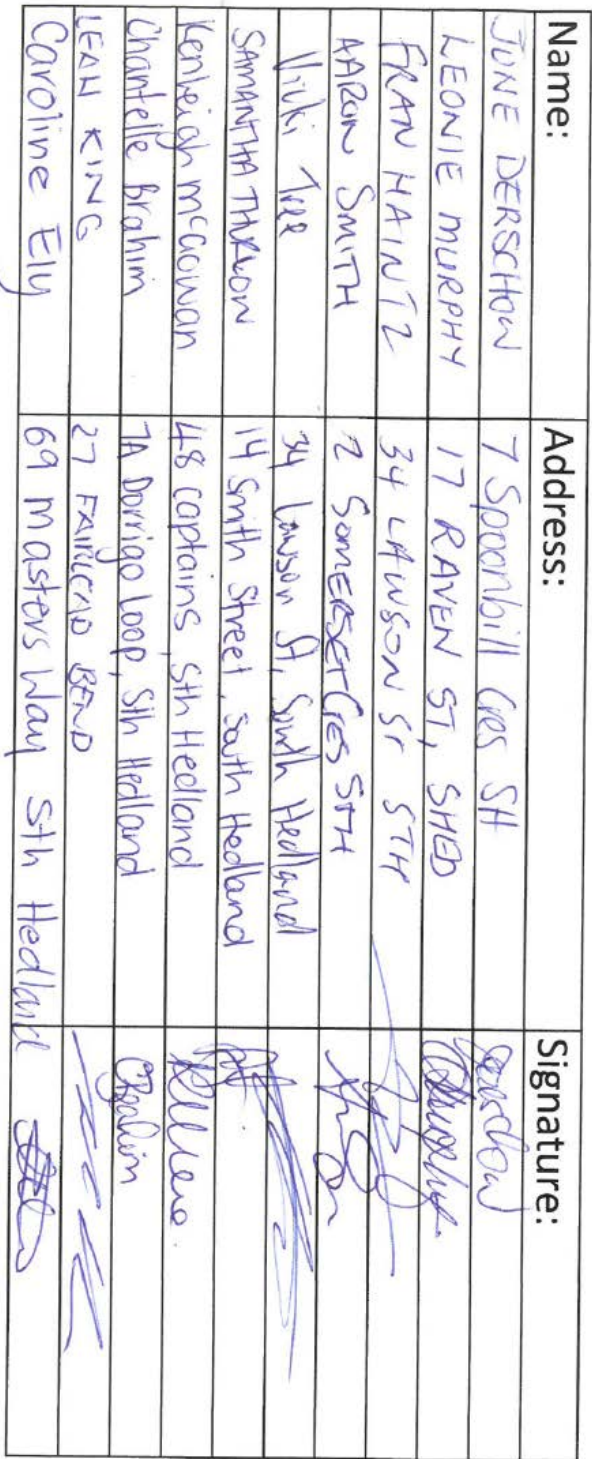 Name: Address: Signature:
JUNE DERSCHOW 7 Spoonbill Cres SH
LEONIE MURPHY 17 RAVEN ST, SHED
FRAN HAINTZ 34 LAWSON St STH
AARON SMITH 2 SOMERSET CRES STH
Vicki Tree 34 Lawson St, South Hedland
SAMANTHA 14 Smith Street, South Hedland
Kenleigh McGowan 48 Captains, Sth Hedland
Chantelle Brahim 7A Dorrigo Loop, Sth Hedland CBrahim
LEAH KING 27 BEND
Caroline Ely 69 Masters Way Sth Hedland